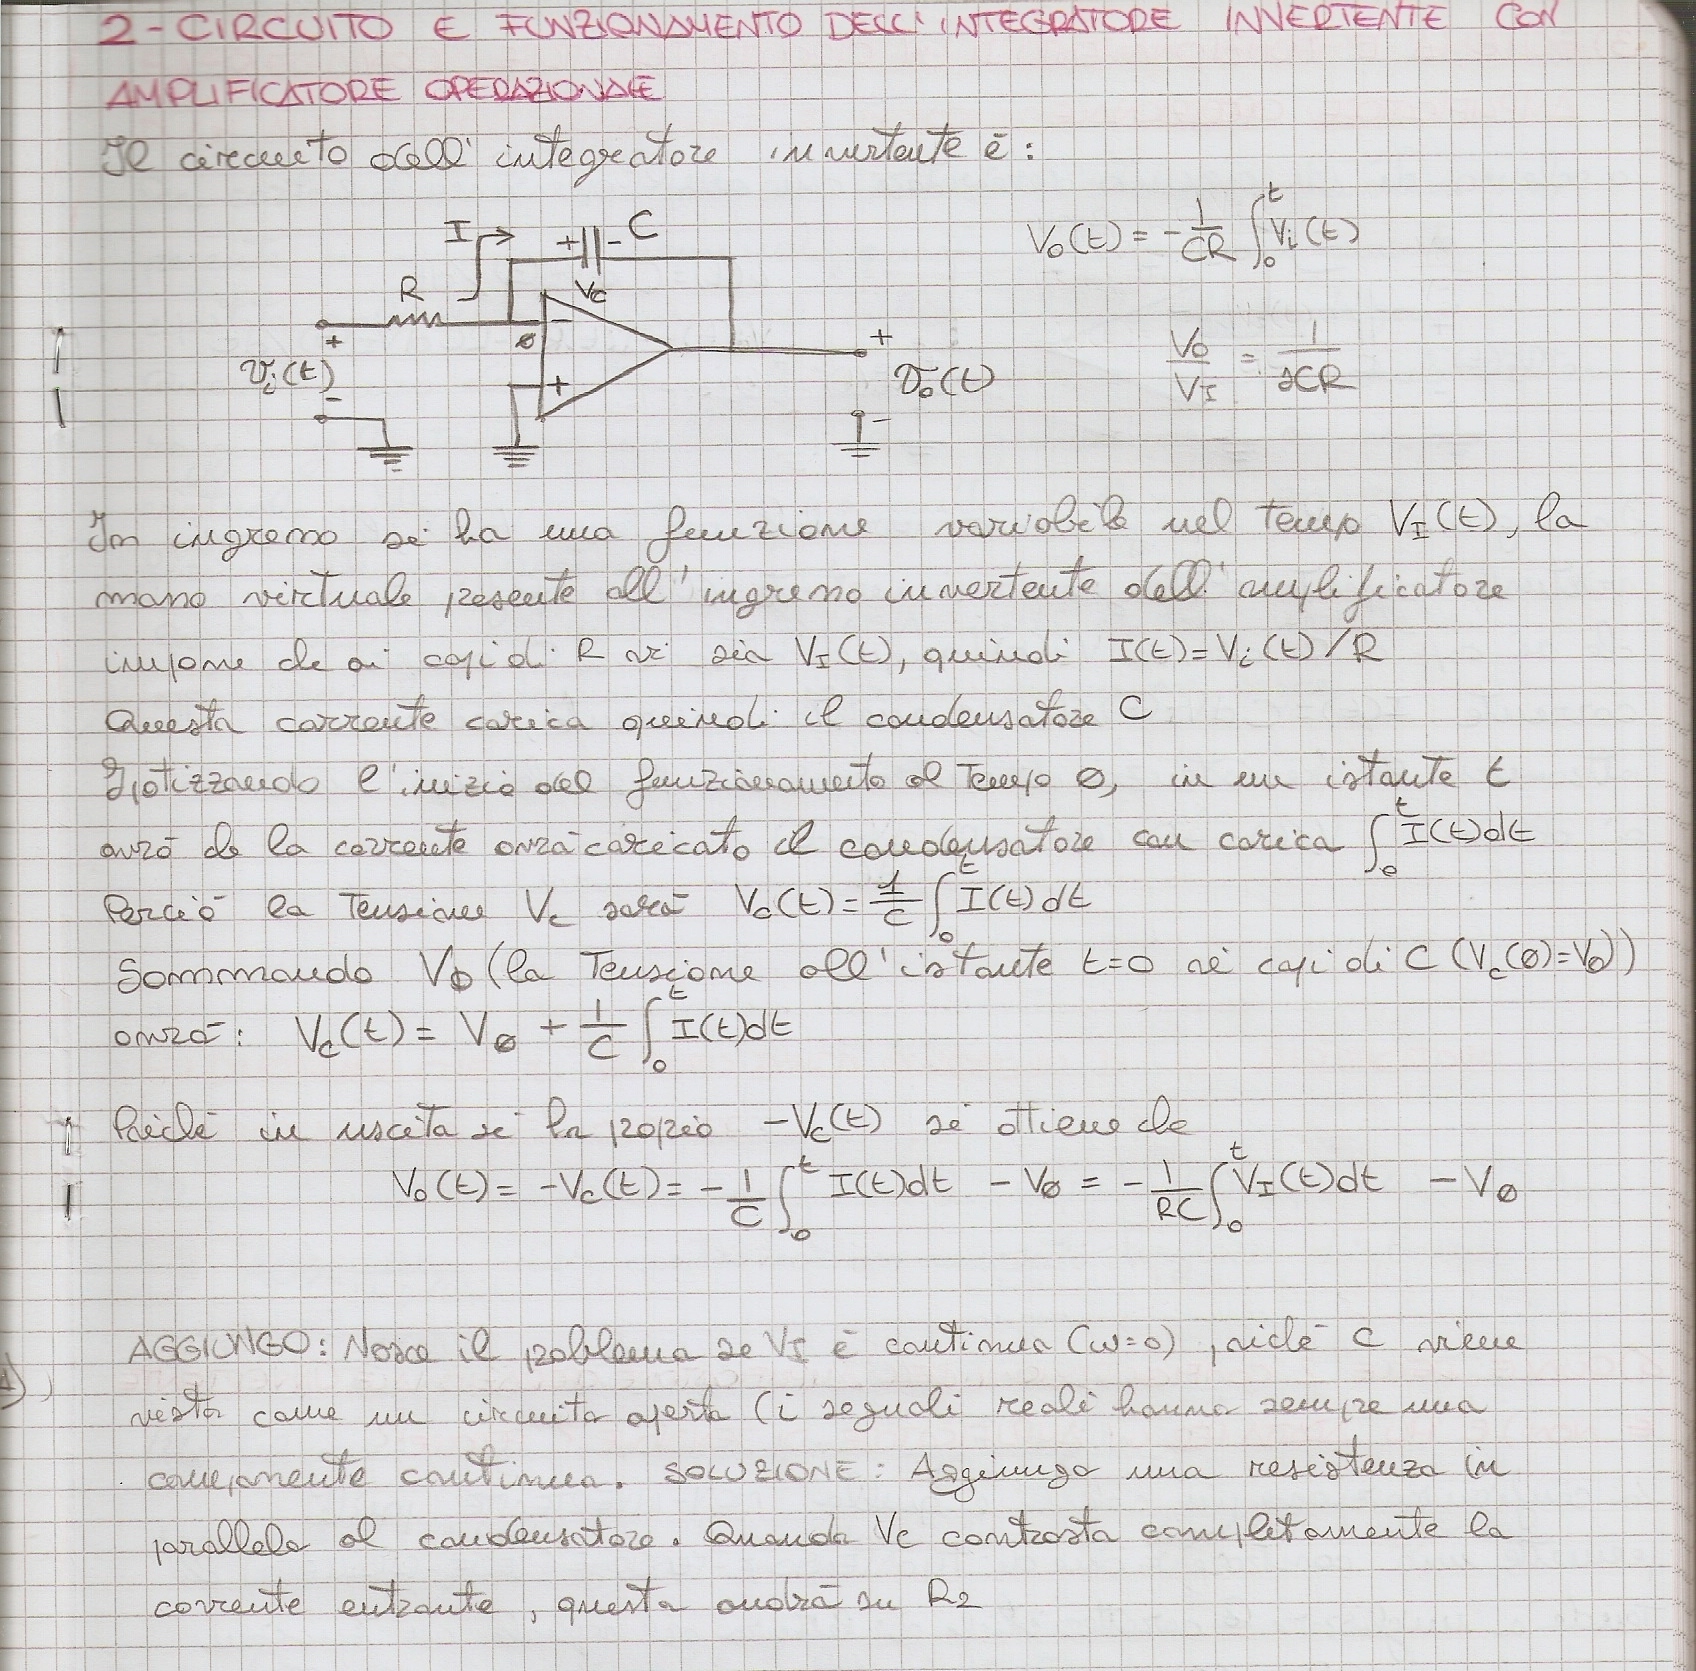 2-CIRCUITO E FUNZIONAMENTO DELL'INTEGRATORE INVERTENTE CON
AMPLIFICATORE OPERAZIONALE
Il circuito dell'integratore invertente è:
I + - C
Vo(t) = -1/CR ∫₀ᵗ Vi(t)
R Vc
+ ø - +
Vi(t) + Vo(t)
Vo/VI = 1/sCR
- -
In ingresso si ha una funzione variabile nel tempo VI(t), la
massa virtuale presente all'ingresso invertente dell'amplificatore
impone che ai capi di R vi sia VI(t), quindi I(t)=Vi(t)/R
Questa corrente carica quindi il condensatore C
Ipotizzando l'inizio del funzionamento al tempo 0, in un istante t
avrò che la corrente avrà caricato il condensatore con carica ∫₀ᵗ I(t)dt
Perciò la tensione Vc sarà Vc(t) = 1/C ∫₀ᵗ I(t)dt
Sommando Vø (la tensione all'istante t=0 ai capi di C (Vc(ø)=Vø))
avrò: Vc(t) = Vø + 1/C ∫₀ᵗ I(t)dt
Poiché in uscita si ha poprio -Vc(t) si ottiene che
Vo(t) = -Vc(t) = -1/C ∫₀ᵗ I(t)dt - Vø = -1/RC ∫₀ᵗ VI(t)dt - Vø
AGGIUNGO: Nasce il problema se VI è continua (ω=0), C viene
visto come un circuito aperto (i segnali reali hanno sempre una
componente continua. SOLUZIONE: Aggiungo una resistenza in
parallelo al condensatore. Quando Vc contrasta completamente la
corrente entrante, questa andrà su R2